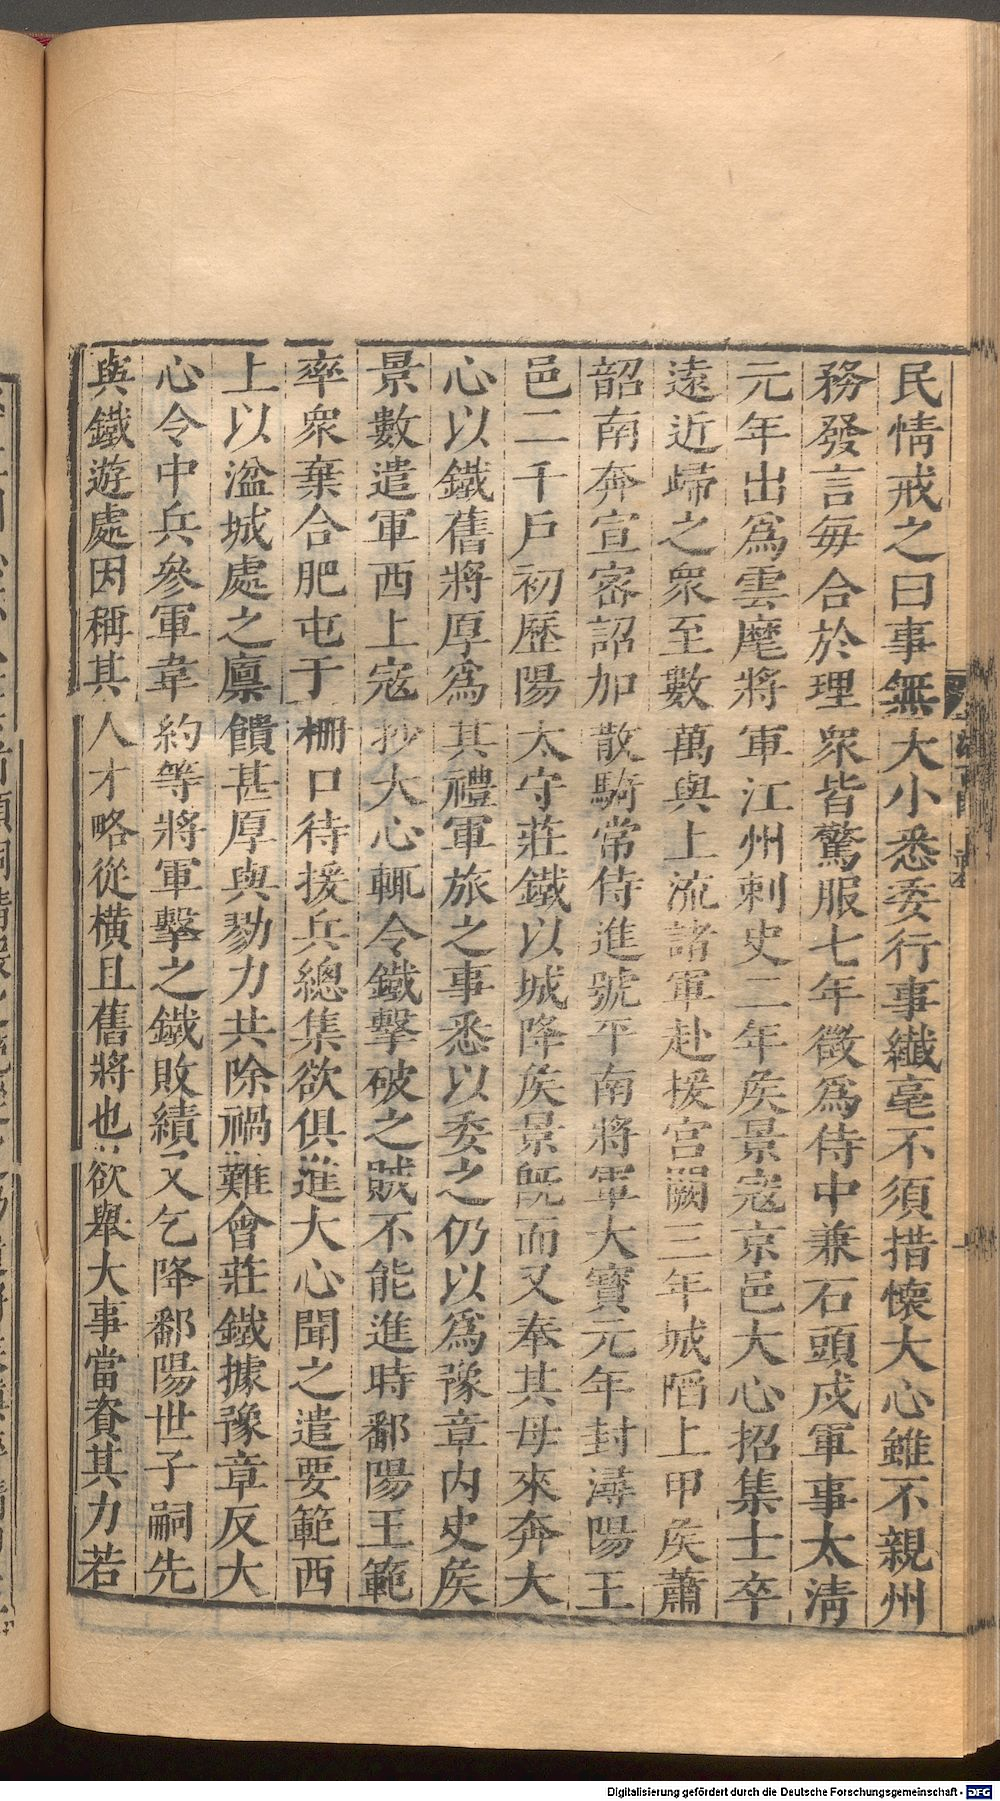 民情戒之曰事無大小悉委行事纖毫不須措懷大心雖不親州
務發言每合於理衆皆驚服七年徵爲侍中兼石頭戍軍事太淸
元年出爲雲麾將軍江州刺史二年矦景寇京邑大心招集士卒
遠近歸之衆至數萬與上流諸軍赴援宫闕三年城陷上甲矦蕭
韶南奔宣密詔加散騎常侍進號平南將軍大寶元年封潯陽王
邑二千戶初歷陽太守莊鐵以城降矦景旣而又奉其母來奔大
心以鐵舊將厚爲其禮軍旅之事悉以委之仍以爲豫章内史矦
景數遣軍西上寇抄大心輒令鐵擊破之賊不能進時鄱陽王範
率衆棄合肥屯于柵口待援兵總集欲俱進大心聞之遣要範西
上以湓城處之廩饋甚厚與勠力共除禍難會莊鐵據豫章反大
心令中兵參軍韋約等將軍擊之鐵敗績又乞降鄱陽世子嗣先
與鐵遊處因稱其人才略從橫且舊將也欲舉大事當資其力若
Digitalisierung gefördert durch die Deutsche Forschungsgemeinschaft - DFG